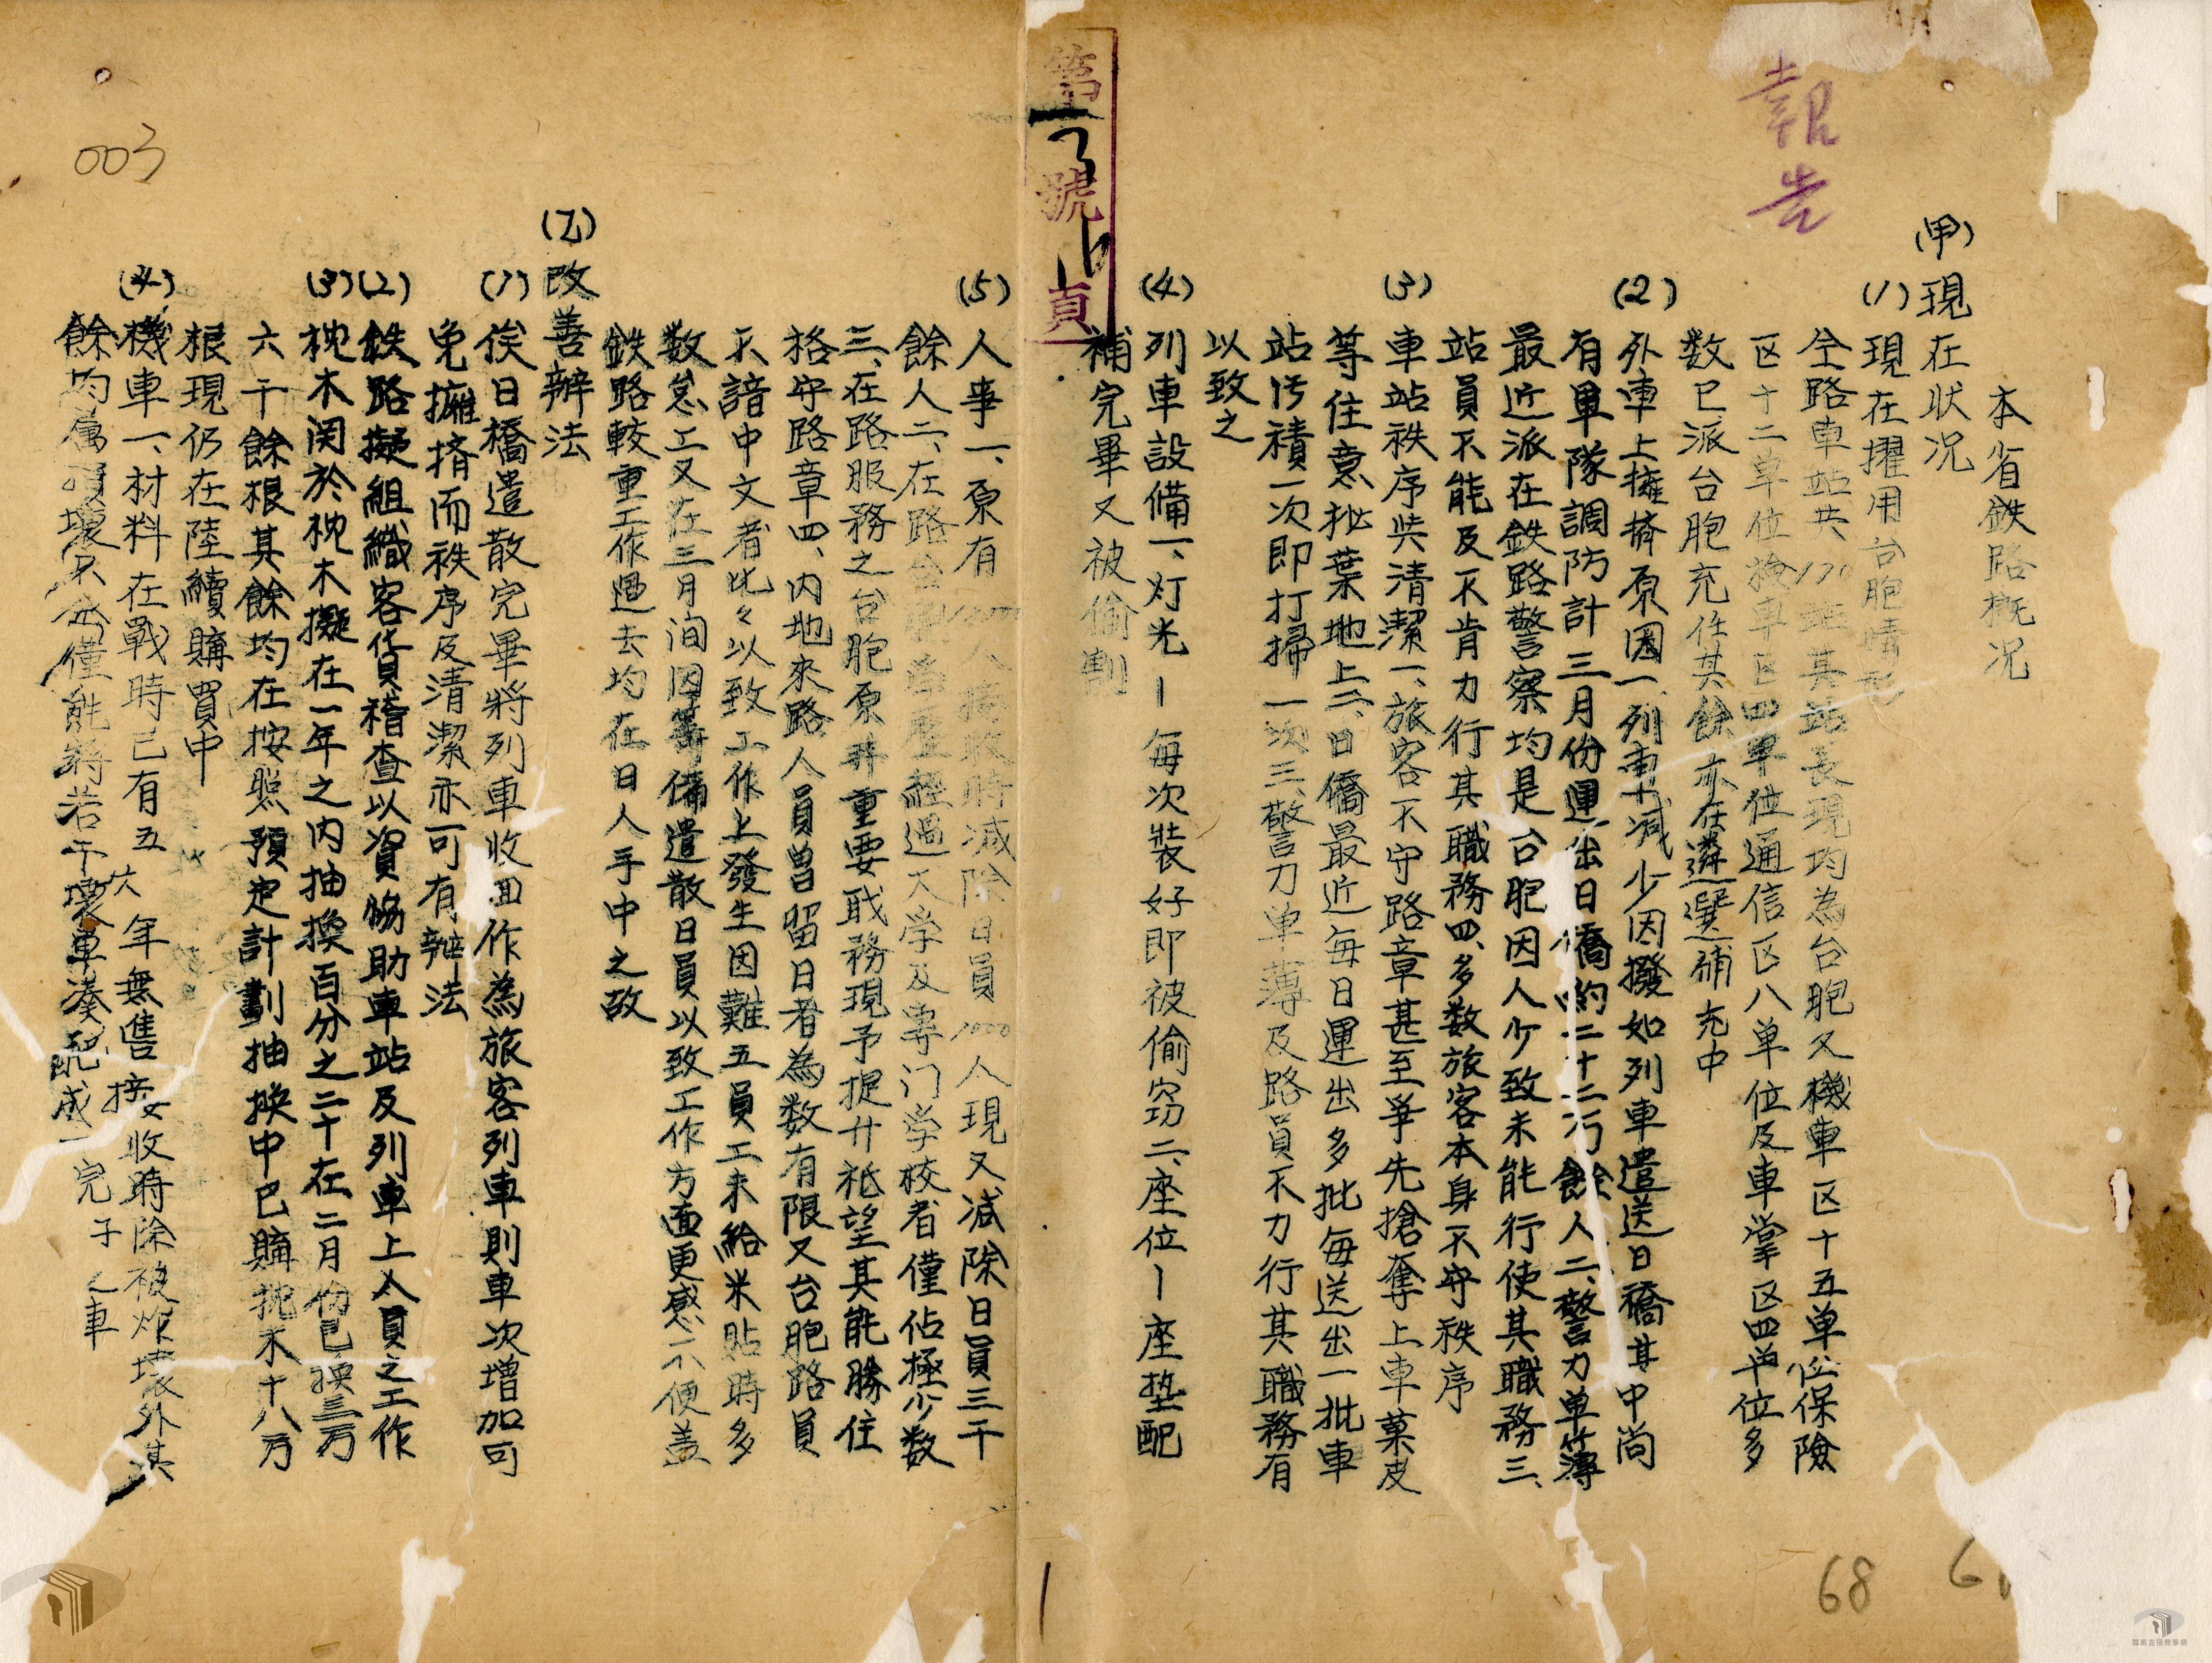 報告
本省鉄路概况
(甲)現在状况
(1)現在擢用台胞情形
全路車站共170站其站長現均為台胞又機車区十五单位保險
区十二单位檢車区四单位通信区八单位及車掌区四单位多
数已派台胞充任其餘亦在遴選補充中
(2)外車上擁擠原因一、列車減少因撥如列車遣送日僑其中尚
有軍隊調防計三月份運出日僑約二十二万餘人二、警力单薄
最近派在鉄路警察均是台胞因人少致未能行使其職務三、
站員不能及不肯力行其職務四、多数旅客本身不守秩序
(3)車站秩序與清潔一、旅客不守路章甚至爭先搶奪上車菓皮
等任意抛棄地上二、日僑最近每日運出多批每送出一批車
站污積一次即打掃一次三、警力单薄及路員不力行其職務有
以致之
(4)列車設備一、灯光—每次裝好即被偷窃二、座位—座垫配
補完畢又被偷割
第 號 頁
(5)人事一、原有 人接收時減除日員1000人現又減除日員三千
餘人二、在路台胞學歷經過大学及專门学校者僅佔極少数
三、在路服務之台胞原非重要职務現予提升祗望其能勝任
格守路章四、内地來路人員曾留日者為数有限又台胞路員
不諳中文者比々以致工作上發生困難五員工未給米貼時多
数怠工又在三月间因籌備遣散日員以致工作方面更感不便盖
鉄路較重工作過去均在日人手中之故
(乙)改善辦法
(1)俟日僑遣散完畢將列車收回作為旅客列車則車次增加可
免擁擠而秩序及清潔亦可有辦法
(2)鉄路擬組織客貨稽查以資協助車站及列車上人員之工作
(3)枕木関於枕木擬在一年之内抽換百分之二十在二月份已換三万
六千餘根其餘均在按照預定計劃抽換中已購枕木十八万
根現仍在陸續購買中
(4)機車一、材料在戰時已有五六年無售接收時除被炸壞外其
餘均属損壞不堪僅能將若干壞車湊配成一完子之車
003
68
6
1
檔案支援教學網